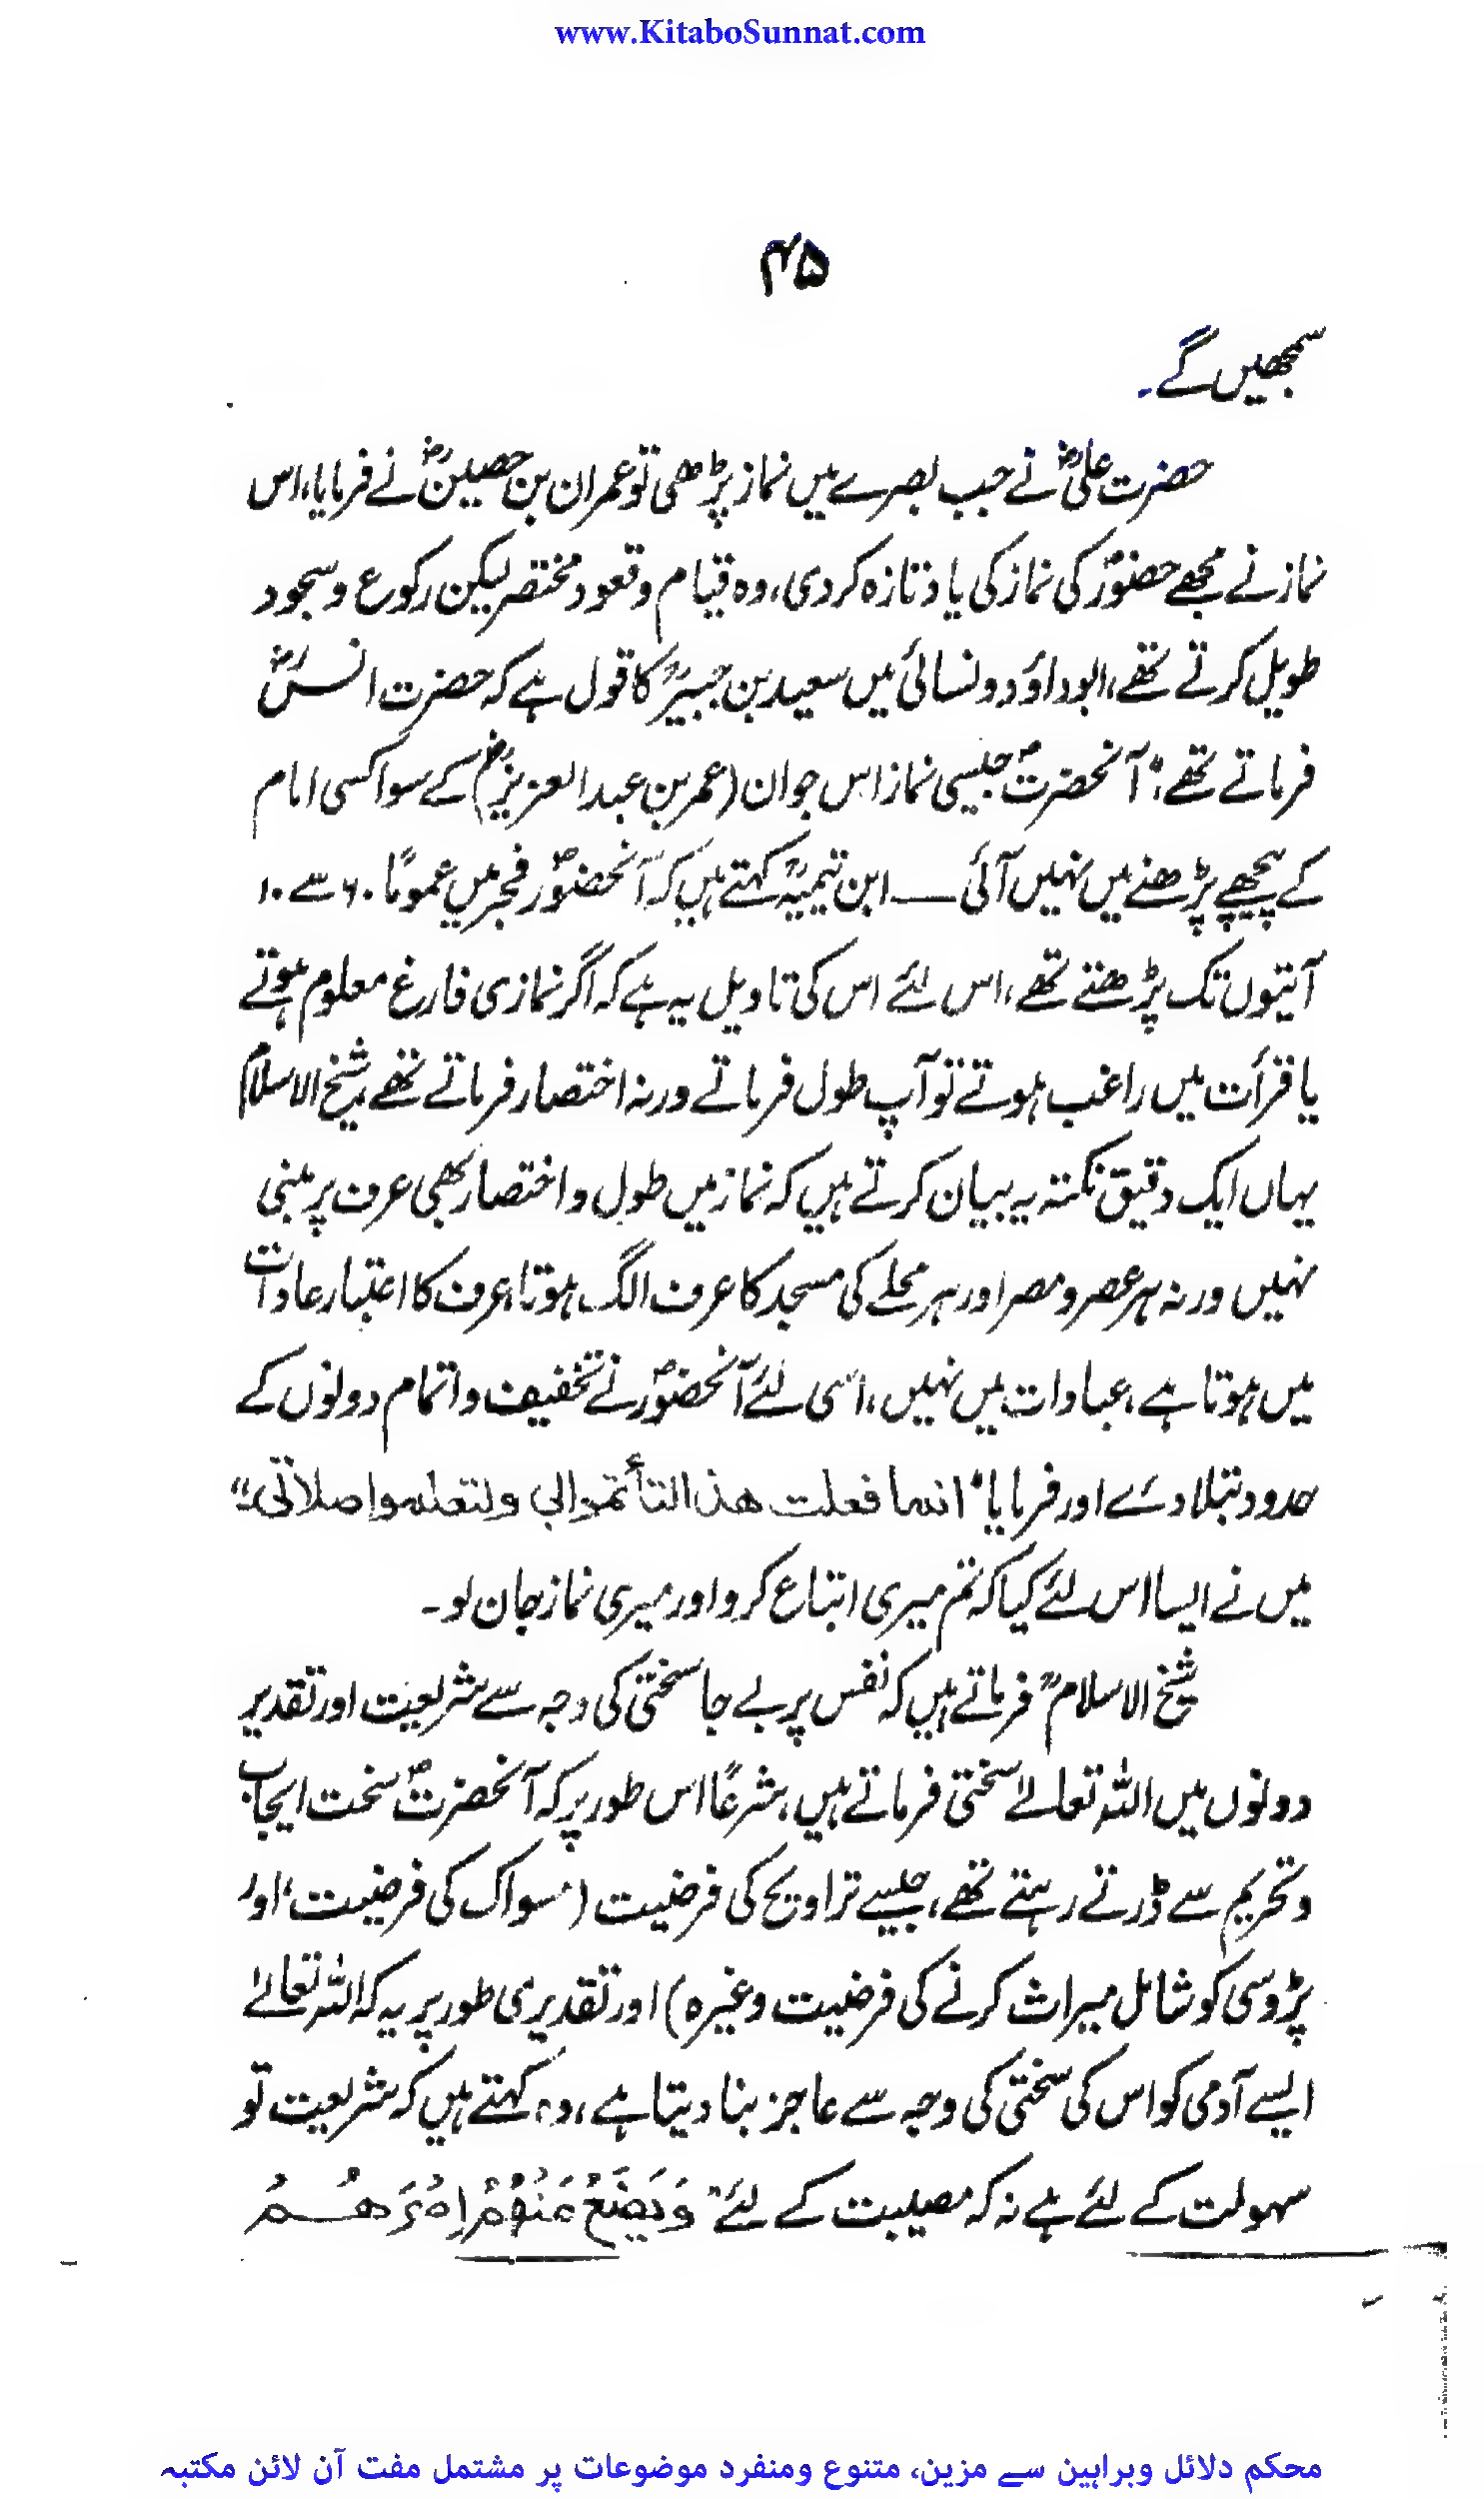 www.KitaboSunnat.com
۴۵
سمجھیں گے۔
حضرت علیؓ نے جب بصرے میں نماز پڑھی تو عمران بن حصینؓ نے فرمایا، اس
نماز نے مجھے حضورؐ کی نماز کی یاد تازہ کردی، وہ قیام وقعود مختصر لیکن رکوع وسجود
طویل کرتے تھے، ابوداؤد ونسائی میں سعید بن جبیرؒ کا قول ہے کہ حضرت انسؓ
فرماتے تھے: "آنحضرتؐ جیسی نماز اس جوان (عمر بن عبدالعزیزؓ) کے سوا کسی امام
کے پیچھے پڑھنے میں نہیں آئی — ابن تیمیہؒ کہتے ہیں کہ آنحضورؐ فجر میں عموماً ۶۰ سے ۱۰۰
آیتوں تک پڑھتے تھے، اس لئے اس کی تاویل یہ ہے کہ اگر نمازی فارغ معلوم ہوتے
یا قرأت میں راغب ہوتے تو آپ طول فرماتے ورنہ اختصار فرماتے تھے شیخ الاسلام
یہاں ایک دقیق نکتہ یہ بیان کرتے ہیں کہ نماز میں طول واختصار بھی عرف پر مبنی
نہیں ورنہ ہر عصر ومصر اور ہر محلے کی مسجد کا عرف الگ ہوتا، عرف کا اعتبار عادات
میں ہوتا ہے، عبادات میں نہیں، اسی لئے آنحضورؐ نے تخفیف واتمام دونوں کے
حدود بتلا دے اور فرمایا "انما فعلت هذا لتأتموا بی ولتعلموا صلاتی"
میں نے ایسا اس لئے کیا کہ تم میری اتباع کرو اور میری نماز جان لو۔
شیخ الاسلامؒ فرماتے ہیں کہ نفس پر بے جا سختی کی وجہ سے شریعت اور تقدیر
دونوں میں اللہ تعالیٰ سختی فرماتے ہیں، شرعاً اس طور پر کہ آنحضرتؐ سخت ایجاب
وتحریم سے ڈرتے رہتے تھے، جیسے تراویح کی فرضیت (مسواک کی فرضیت، اور
پڑوسی کو شامل میراث کرنے کی فرضیت وغیرہ) اور تقدیری طور پر یہ کہ اللہ تعالیٰ
ایسے آدمی کو اس کی سختی کی وجہ سے عاجز بنا دیتا ہے، وہ کہتے ہیں کہ شریعت تو
سہولت کے لئے ہے نہ کہ مصیبت کے لئے "وَيَضَعُ عَنْهُمْ اِصْرَهُمْ
محکم دلائل وبراہین سے مزین، متنوع ومنفرد موضوعات پر مشتمل مفت آن لائن مکتبہ